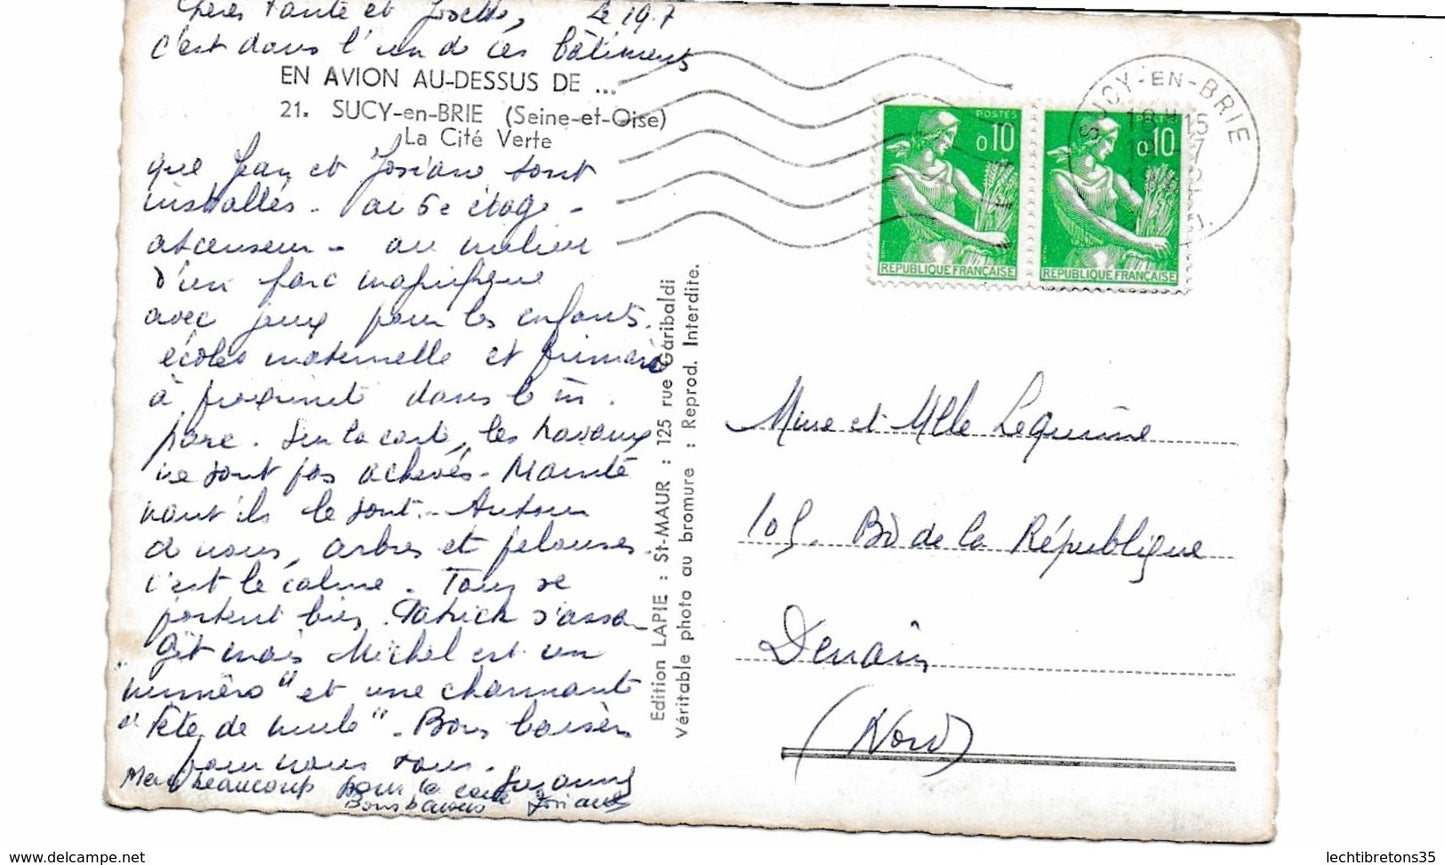 Chères Tante et Josette, Le 19.7
c'est dans l'un de ces bâtiments
EN AVION AU-DESSUS DE ...
21. SUCY-en-BRIE (Seine-et-Oise)
La Cité Verte
que Jean et Josiane sont
installés - au 6e étage -
ascenseur - au milieu
d'un parc magnifique
avec jeux pour les enfants.
écoles maternelle et primaire
à proximité dans le m
parc. Sur la carte, les travaux
ne sont pas achevés - Mainte
nant ils le sont. - Autour
de nous, arbres et pelouses.
c'est le calme. Tous se
portent bien. Patrick s'assa-
git mais Michel est un
"numéro" et une charmante
"tête de mule". Bons baisers
pour nous tous.
Suzanne
Merci beaucoup pour la carte
Bons baisers Josiane
Edition LAPIE : St-MAUR : 125 rue Garibaldi
Véritable photo au bromure : Reprod. Interdite.
POSTES
0,10
REPUBLIQUE FRANÇAISE
POSTES
0,10
REPUBLIQUE FRANÇAISE
SUCY-EN-BRIE
Mme et Mlle Lequime
105. Bd de la République
Denain
(Nord)
www.delcampe.net
lechtibretons35